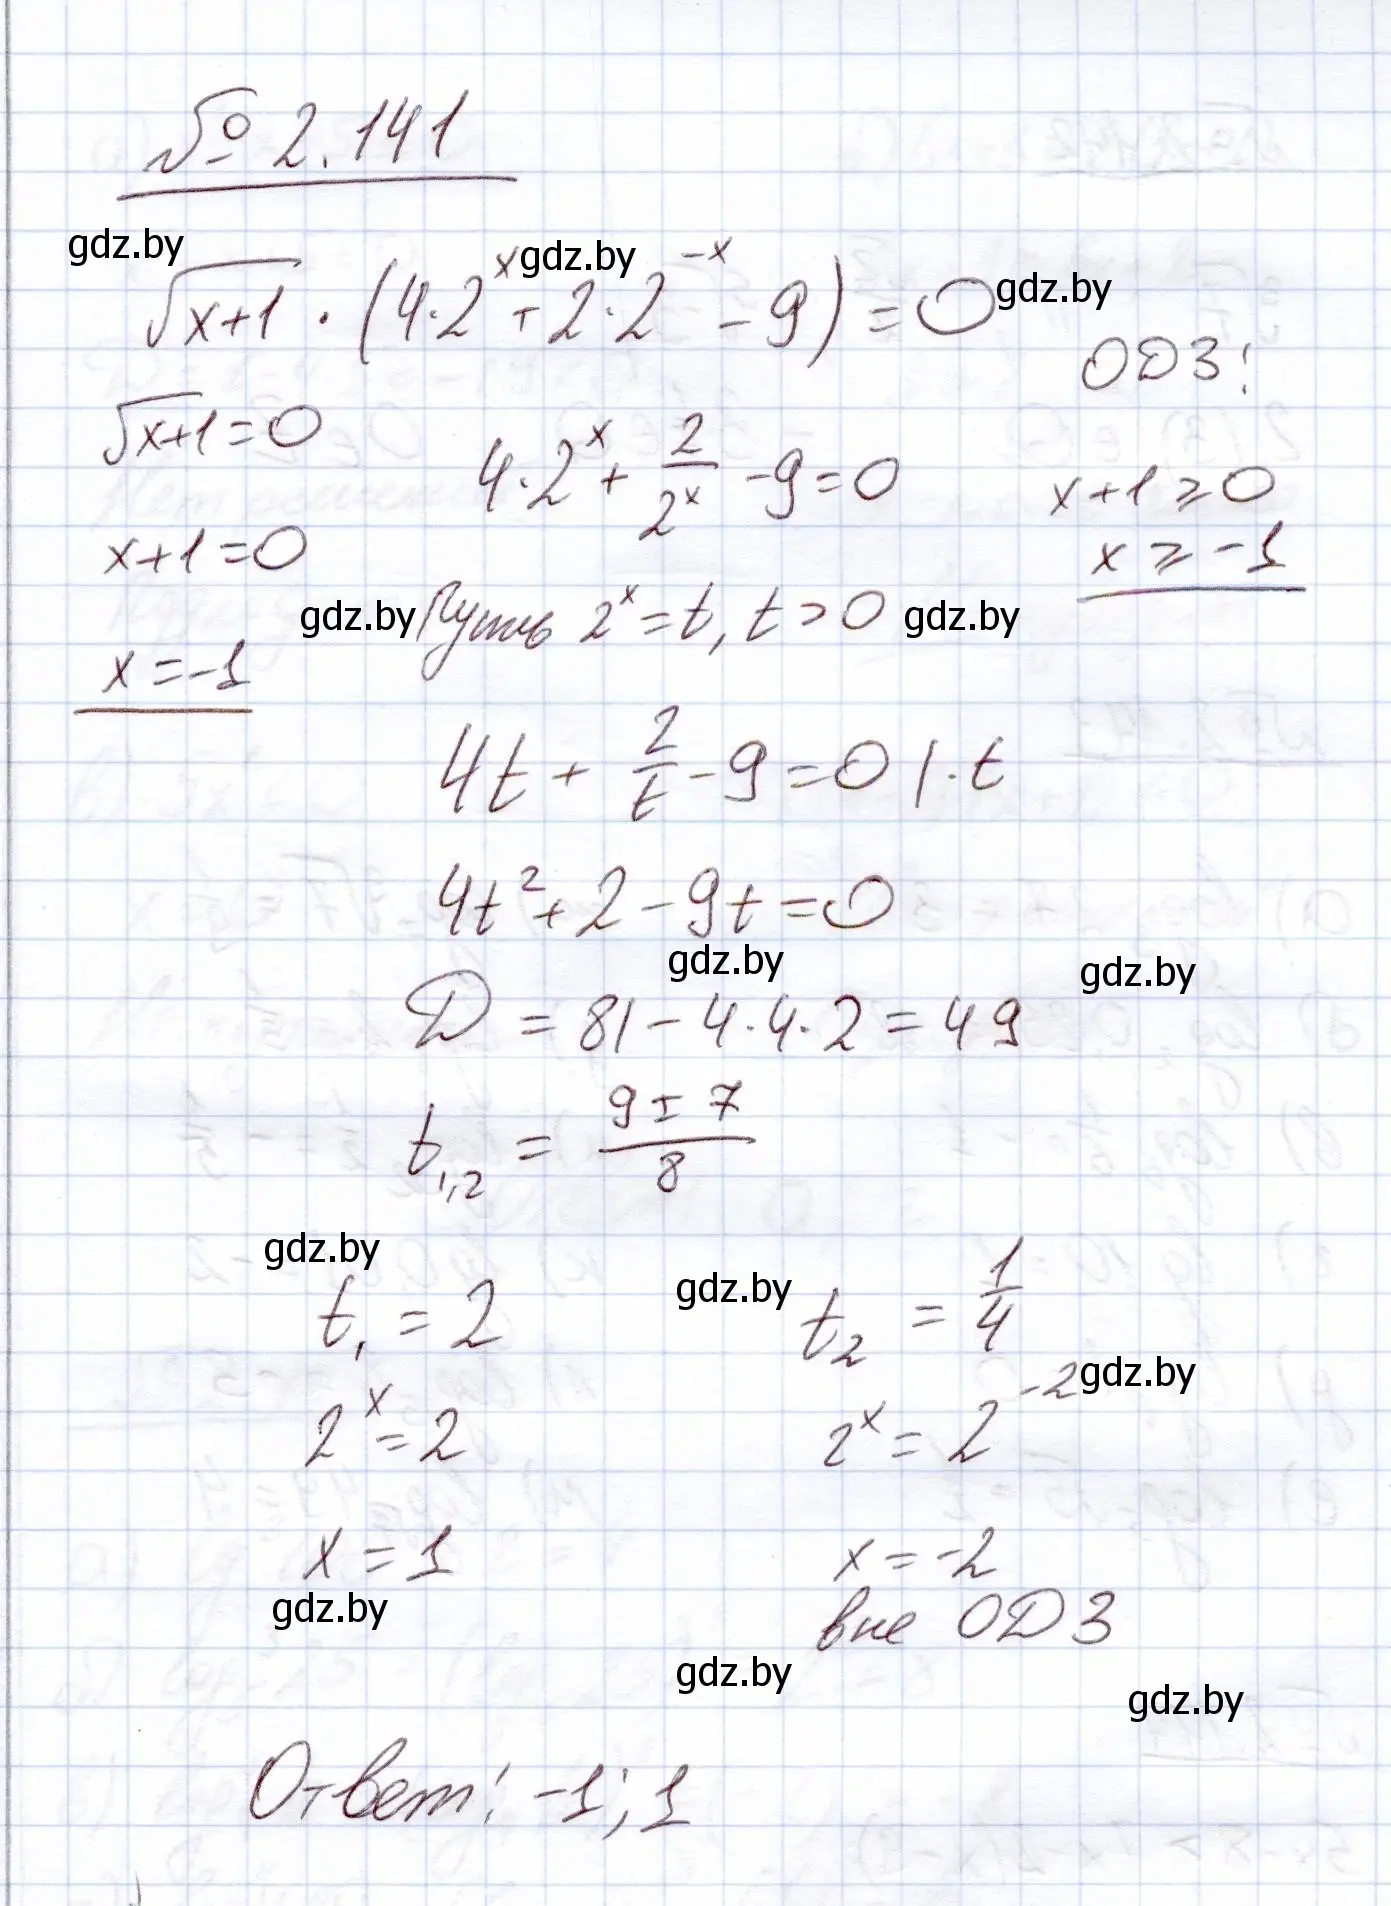 № 2.141
gdz.by
√(x+1) · (4·2^x + 2·2^(-x) - 9) = 0
gdz.by
gdz.by
ОДЗ:
√(x+1) = 0
4·2^x + 2/2^x - 9 = 0
x+1 ⩾ 0
x+1 = 0
x ⩾ -1
gdz.by
Пусть 2^x = t, t > 0
gdz.by
x = -1
4t + 2/t - 9 = 0 | · t
4t² + 2 - 9t = 0
gdz.by
gdz.by
D = 81 - 4·4·2 = 49
t₁,₂ = (9 ± 7)/8
gdz.by
gdz.by
t₁ = 2
t₂ = 1/4
gdz.by
2^x = 2
2^x = 2^(-2)
x = 1
x = -2
gdz.by
вне ОДЗ
gdz.by
gdz.by
Ответ: -1; 1